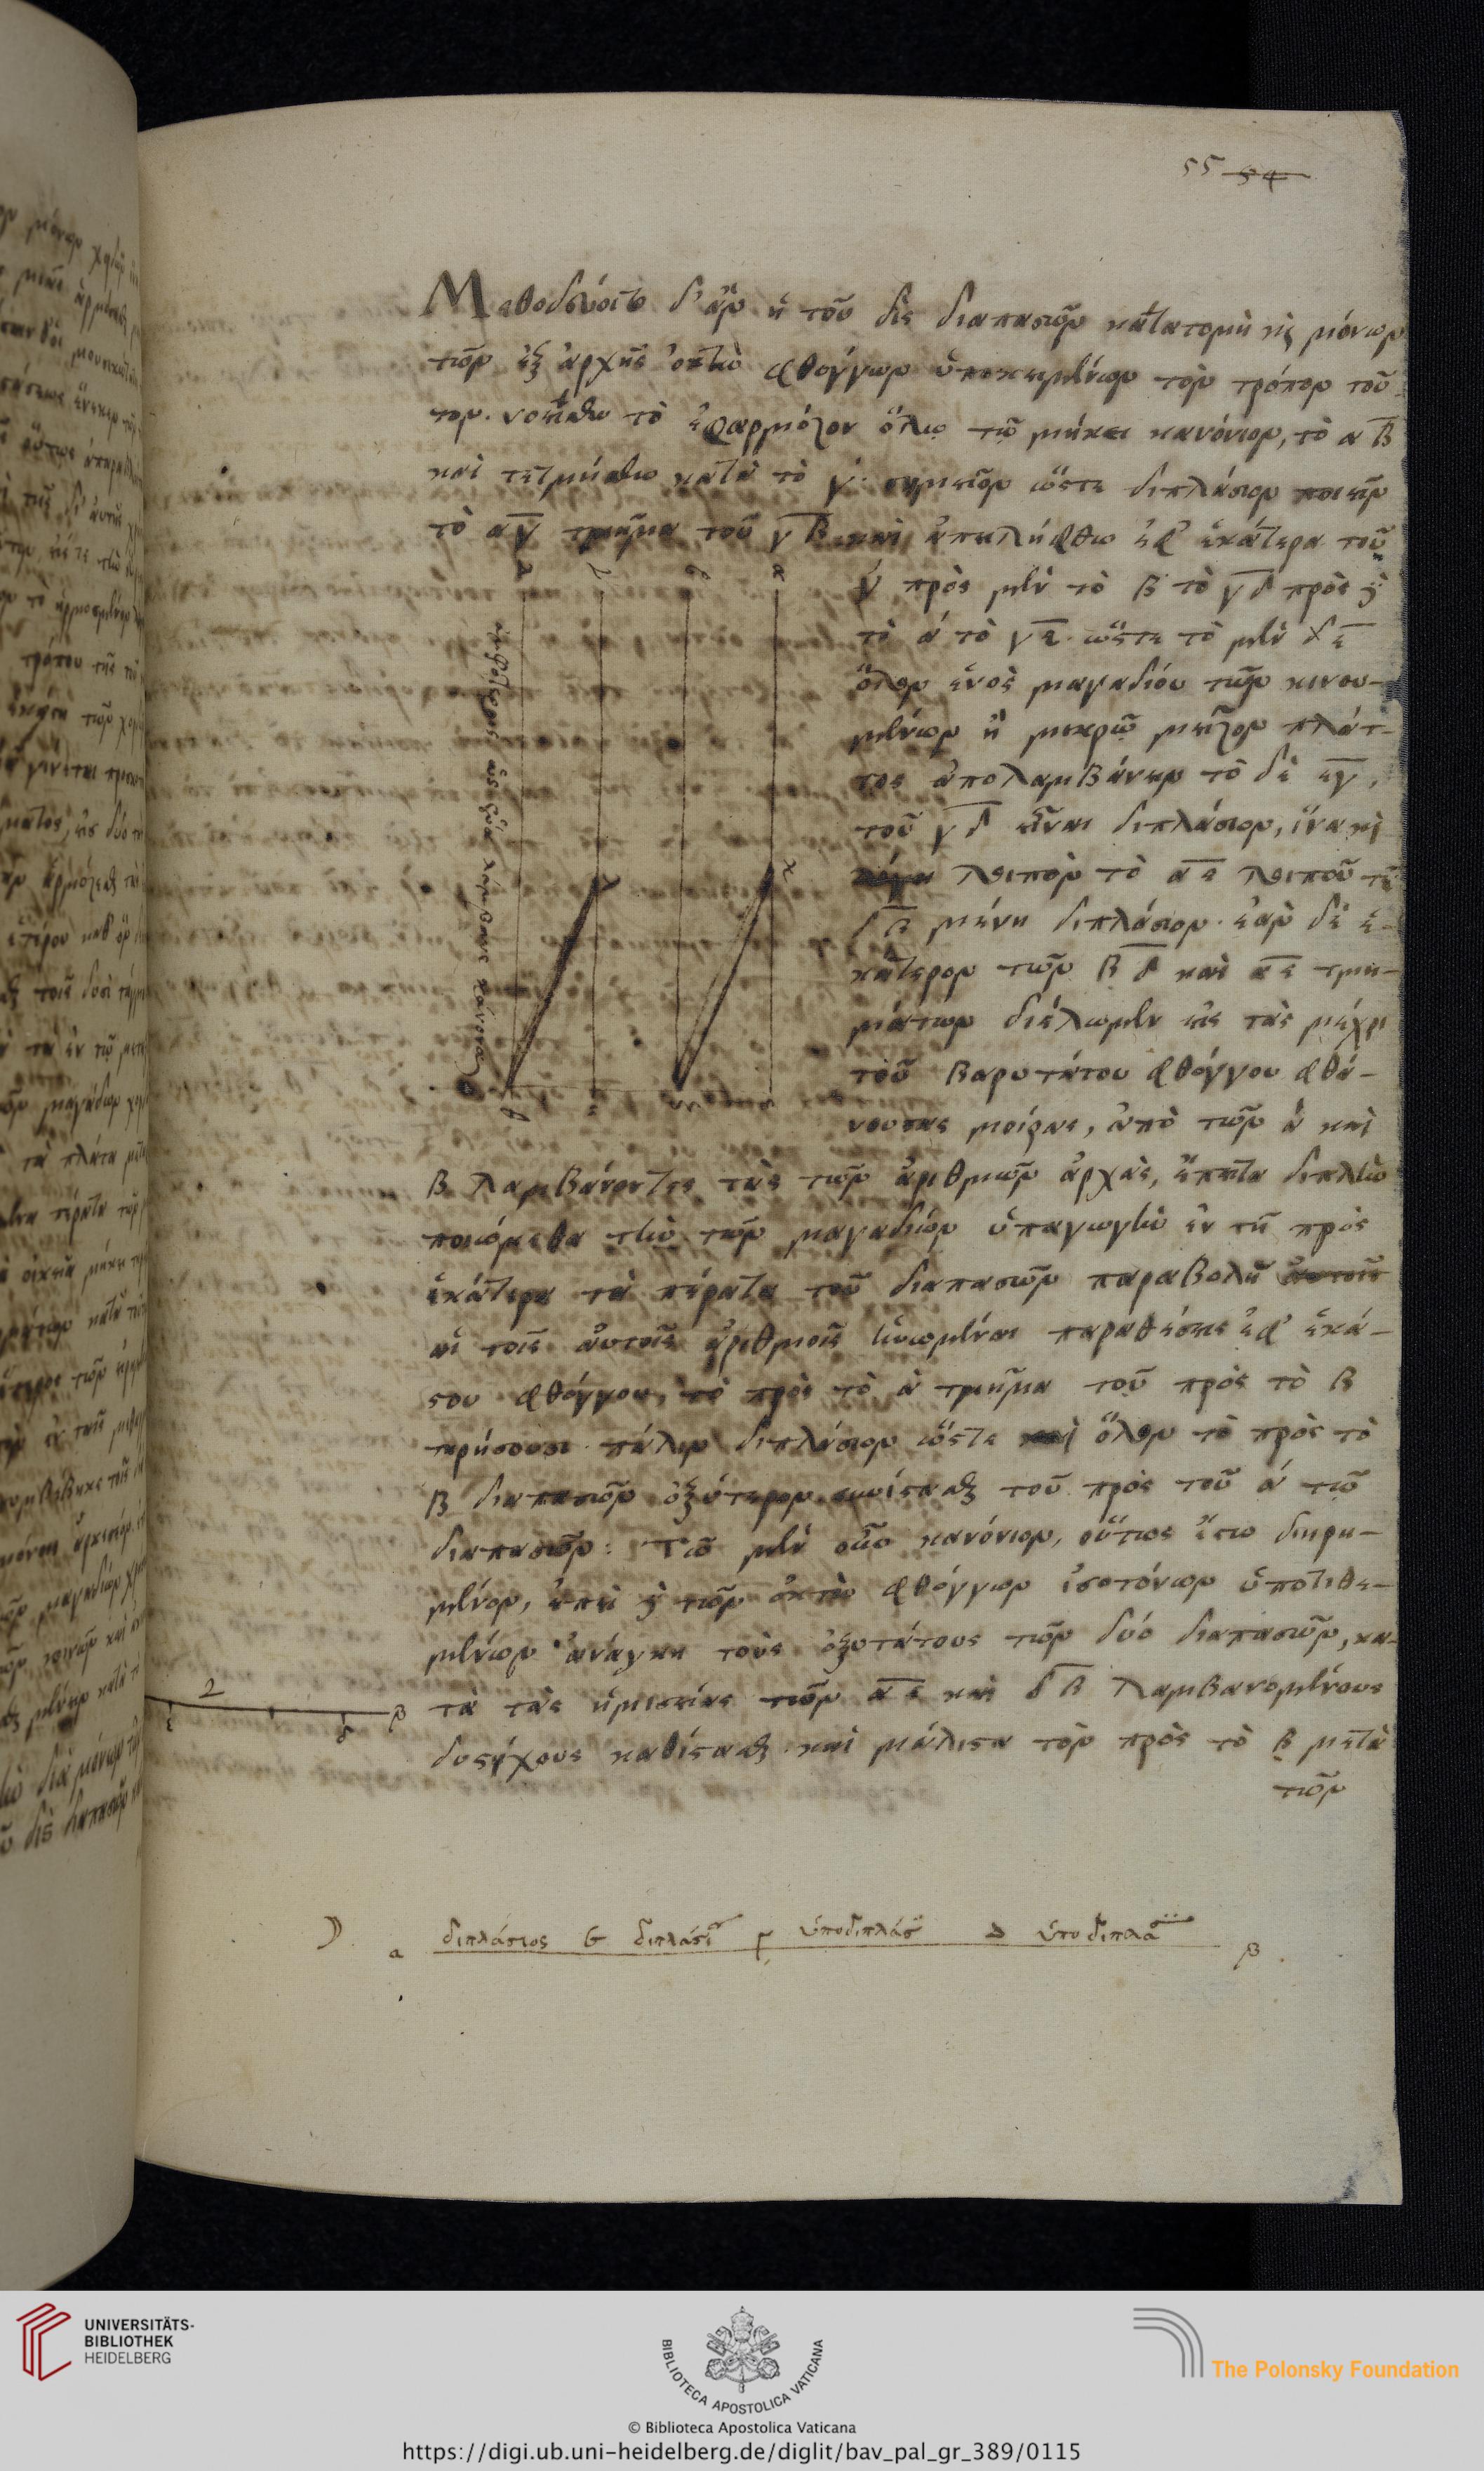 55 54
Μεθοδεύοιτο δ' ἂν ἡ τοῦ δὶς διαπασῶν κατατομὴ κὶ μόνων
τῶν ἐξ ἀρχῆς ὀκτὼ φθόγγων ὑποκειμένων τὸν τρόπον τοῦ-
τον. νοείσθω τὸ ἐφαρμόζον ὅλῳ τῷ μήκει κανόνιον, τὸ αβ
καὶ τετμήσθω κατὰ τὸ γ· σημεῖον ὥστε διπλάσιον ποιεῖν
τὸ αγ τμῆμα τοῦ γβ καὶ ἀπειλήφθω ἐφ' ἑκάτερα τοῦ
γ πρὸς μὲν τὸ β τὸ γδ πρὸς δὲ
τὸ α τὸ γε. ὥστε τὸ μὲν δε
ὅλον ἑνὸς μαγαδίου τῶν κινου-
μένων ἢ μικρῷ μεῖζον πλάτ-
τος ἀπολαμβάνειν τὸ δὲ εγ,
τοῦ γδ εἶναι διπλάσιον, ἵνα κὶ
λοιπὸν τὸ αε λοιποῦ τοῦ
δβ μένη διπλάσιον. ἐὰν δὲ ἑ-
κάτερον τῶν βδ καὶ αε τμη-
μάτων διέλωμεν εἰς τὰς μέχρι
τοῦ βαρυτάτου φθόγγου φθα-
νούσας μοίρας, ἀπὸ τῶν α καὶ
β λαμβάνοντες τὰς τῶν ἀριθμῶν ἀρχὰς, ἔπειτα διπλὴν
ποιώμεθα τὴν τῶν μαγαδίων ὑπαγωγὴν ἐν τῇ πρὸς
ἑκάτερα τὰ πέρατα τοῦ διαπασῶν παραβολῇ αὐτοῖς
αἱ τοῖς αὐτοῖς ἀριθμοῖς γινόμεναι παραθέσεις ἐφ' ἑκά-
στου φθόγγου, τὸ πρὸς τὸ α τμῆμα τοῦ πρὸς τὸ β
τηρήσουσι πάλιν διπλάσιον ὥστε καὶ ὅλον τὸ πρὸς τὸ
β διαπασῶν ὀξύτερον συνίστασθαι τοῦ πρὸς τοῦ α τῷ
διαπασῶν: Τὸ μὲν οὖν κανόνιον, οὕτως ἔστω διῃρη-
μένον, ἐπεὶ δὲ τῶν ὀκτὼ φθόγγων ἰσοτόνων ὑποτιθε-
μένων ἀνάγκη τοὺς ὀξυτάτους τῶν δύο διαπασῶν, κα-
τὰ τὰς ἡμισείας τῶν αε καὶ δβ λαμβανομένους
δυσήχους καθίστασθαι καὶ μάλιστα τὸν πρὸς τὸ β μετὰ
τῶν
α διπλάσιος ϛ διπλάσι γ ὑποδιπλάσ Δ ὑποδιπλα β
UNIVERSITÄTS-
BIBLIOTHEK
HEIDELBERG
BIBLIOTECA APOSTOLICA VATICANA
The Polonsky Foundation
© Biblioteca Apostolica Vaticana
https://digi.ub.uni-heidelberg.de/diglit/bav_pal_gr_389/0115